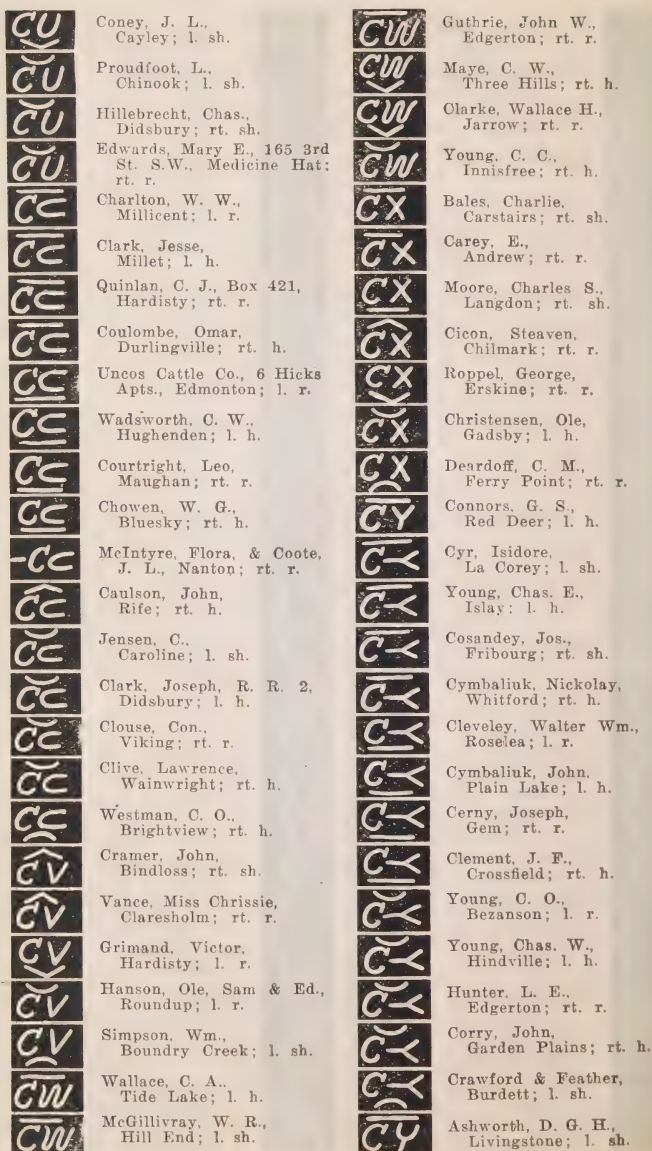 CU Coney, J. L.,
Cayley; l. sh.
CU Proudfoot, L.,
Chinook; l. sh.
CU Hillebrecht, Chas.,
Didsbury; rt. sh.
CU Edwards, Mary E., 165 3rd
St. S.W., Medicine Hat;
rt. r.
Charlton, W. W.,
Millicent; l. r.
Clark, Jesse,
Millet; l. h.
Quinlan, C. J., Box 421,
Hardisty; rt. r.
Coulombe, Omar,
Durlingville; rt. h.
Uncos Cattle Co., 6 Hicks
Apts., Edmonton; l. r.
Wadsworth, C. W.,
Hughenden; l. h.
Courtright, Leo,
Maughan; rt. r.
Chowen, W. G.,
Bluesky; rt. h.
McIntyre, Flora, & Coote,
J. L., Nanton; rt. r.
Caulson, John,
Rife; rt. h.
Jensen, C.,
Caroline; l. sh.
Clark, Joseph, R. R. 2,
Didsbury; l. h.
Clouse, Con.,
Viking; rt. r.
Clive, Lawrence,
Wainwright; rt. h.
Westman, C. O.,
Brightview; rt. h.
CV Cramer, John,
Bindloss; rt. sh.
CV Vance, Miss Chrissie,
Claresholm; rt. r.
CV Grimand, Victor,
Hardisty; l. r.
CV Hanson, Ole, Sam & Ed.,
Roundup; l. r.
CV Simpson, Wm.,
Boundry Creek; l. sh.
CW Wallace, C. A..
Tide Lake; l. h.
CW McGillivray, W. R.,
Hill End; l. sh.
CW Guthrie, John W.,
Edgerton; rt. r.
CW Maye, C. W.,
Three Hills; rt. h.
CW Clarke, Wallace H.,
Jarrow; rt. r.
CW Young, C. C.,
Innisfree; rt. h.
CX Bales, Charlie,
Carstairs; rt. sh.
CX Carey, E.,
Andrew; rt. r.
CX Moore, Charles S.,
Langdon; rt. sh.
CX Cicon, Steaven,
Chilmark; rt. r.
CX Roppel, George,
Erskine; rt. r.
CX Christensen, Ole,
Gadsby; l. h.
CX Deardoff, C. M.,
Ferry Point; rt. r.
CY Connors, G. S.,
Red Deer; l. h.
Cyr, Isidore,
La Corey; l. sh.
Young, Chas. E.,
Islay; l. h.
Cosandey, Jos.,
Fribourg; rt. sh.
Cymbaliuk, Nickolay,
Whitford; rt. h.
Cleveley, Walter Wm.,
Roselea; l. r.
Cymbaliuk, John.
Plain Lake; l. h.
Cerny, Joseph,
Gem; rt. r.
Clement, J. F.,
Crossfield; rt. h.
Young, C. O.,
Bezanson; l. r.
Young, Chas. W.,
Hindville; l. h.
Hunter, L. E..
Edgerton; rt. r.
Corry, John,
Garden Plains; rt. h.
Crawford & Feather,
Burdett; l. sh.
CY Ashworth, D. G. H.,
Livingstone; l. sh.